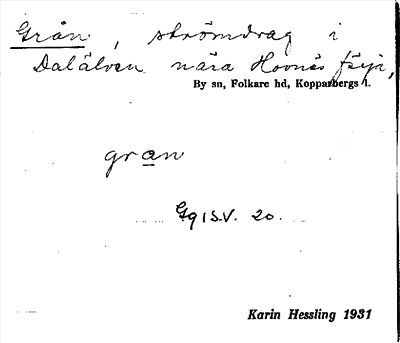 Grån, strömdrag i
Dalälven nära Hovnäs färja,
By sn, Folkare hd, Kopparbergs l.
gran
Gg 15 V. 20.
Karin Hessling 1931